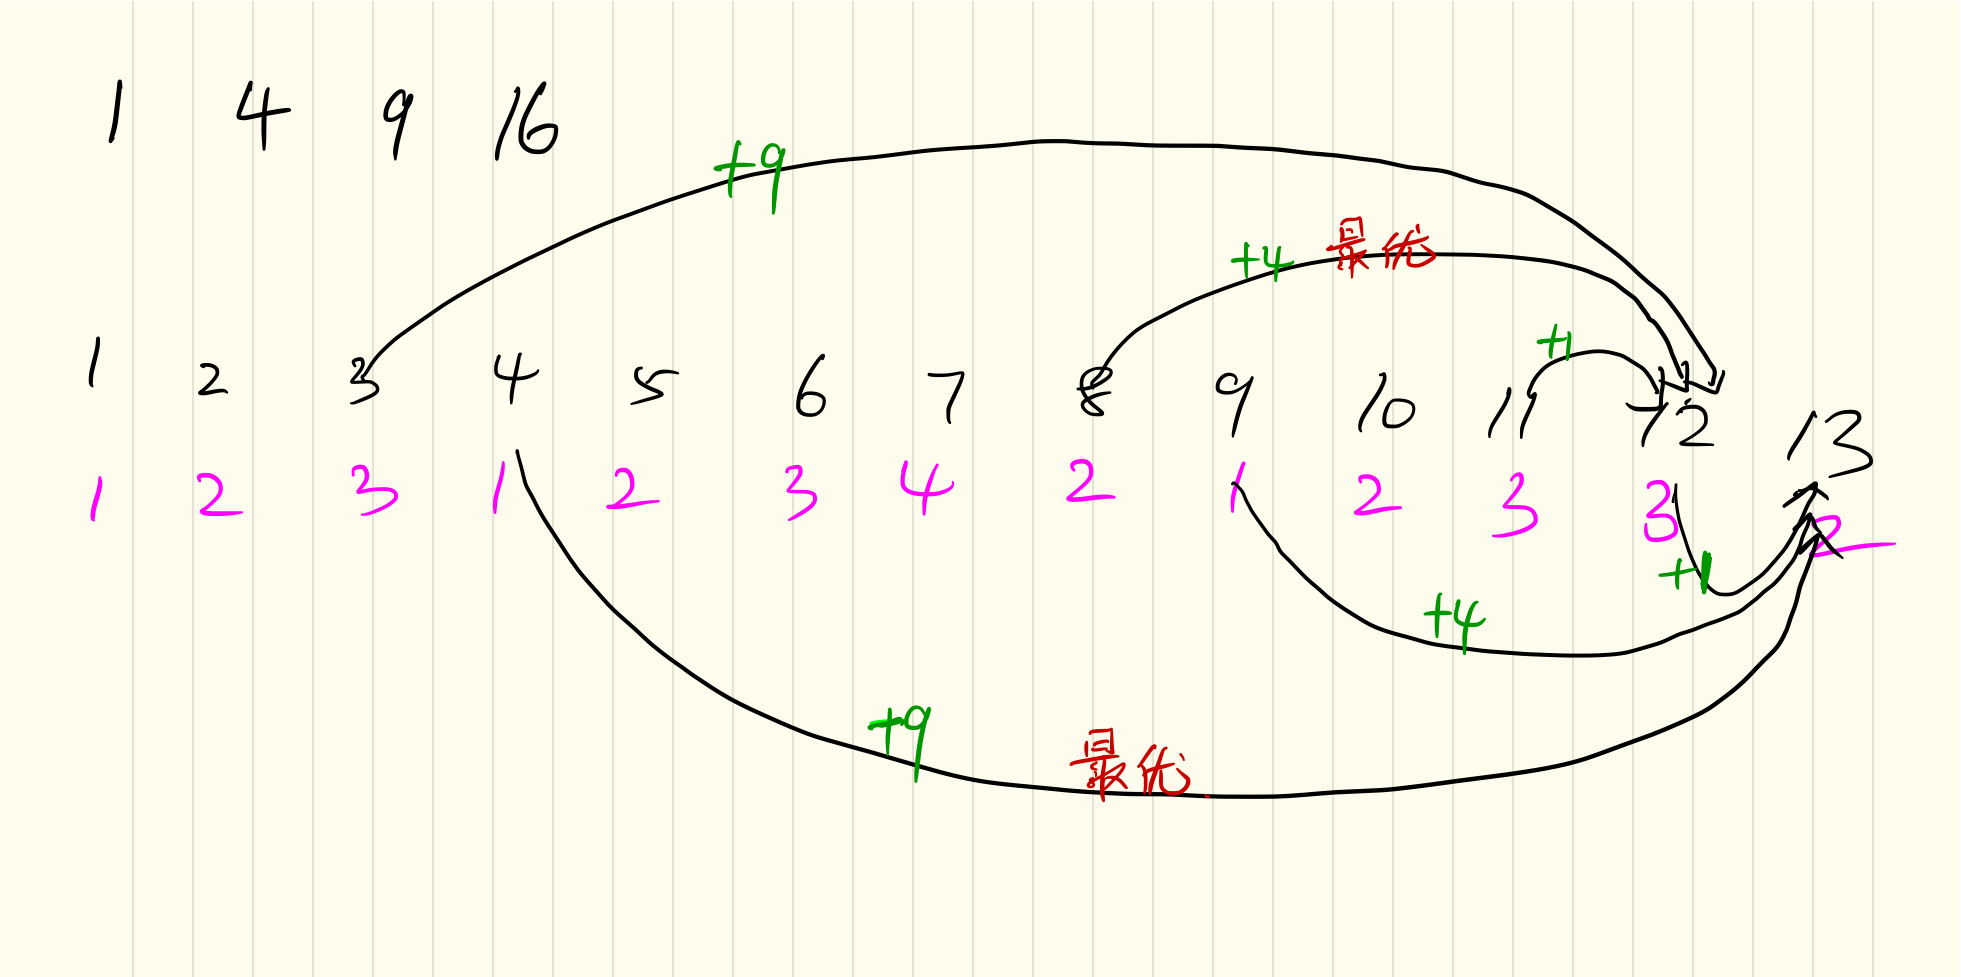 1 4 9 16
+9
+4 最优
+1
1 2 3 4 5 6 7 8 9 10 11 12 13
1 2 3 1 2 3 4 2 1 2 3 3 2
+1
+4
+9 最优